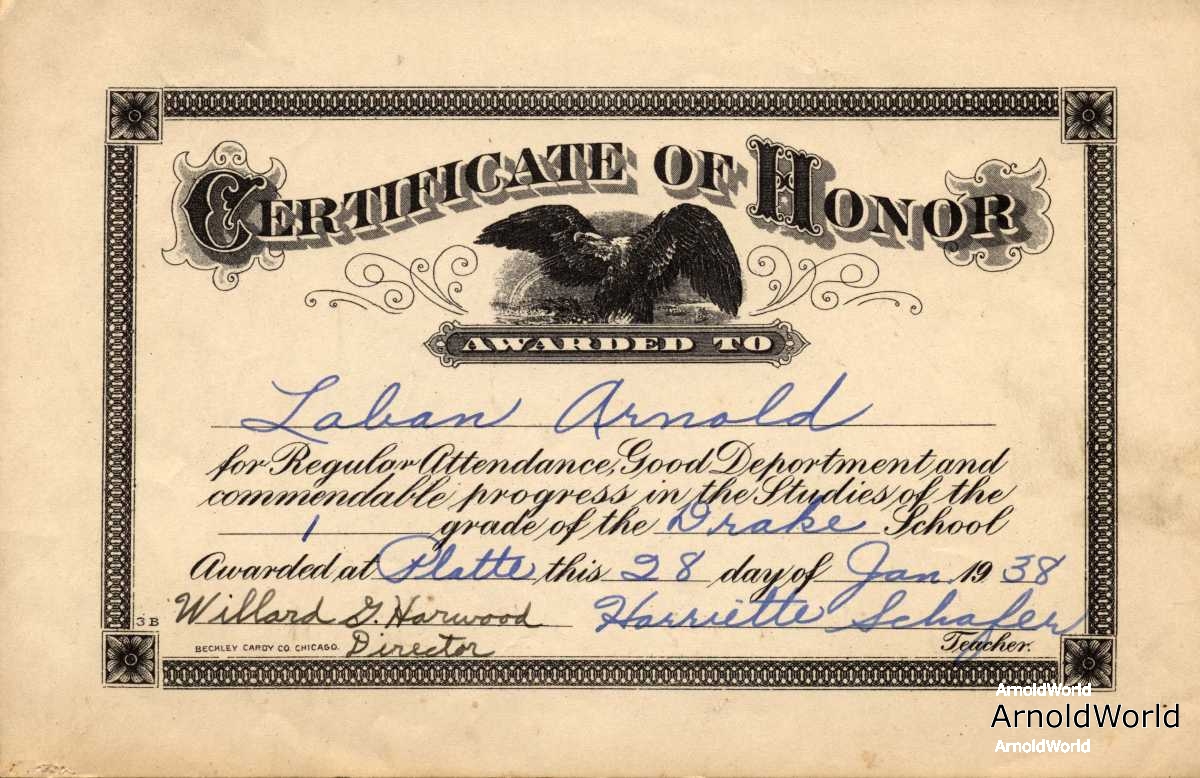 CERTIFICATE OF HONOR
AWARDED TO
Laban Arnold
for Regular Attendance, Good Deportment, and
commendable progress in the Studies of the
1 grade of the Drake School
Awarded at Platte this 28 day of Jan. 1938
Willard G. Harwood Harriette Schafer
3 B
BECKLEY CARDY CO. CHICAGO. Director Teacher.
ArnoldWorld
ArnoldWorld
ArnoldWorld